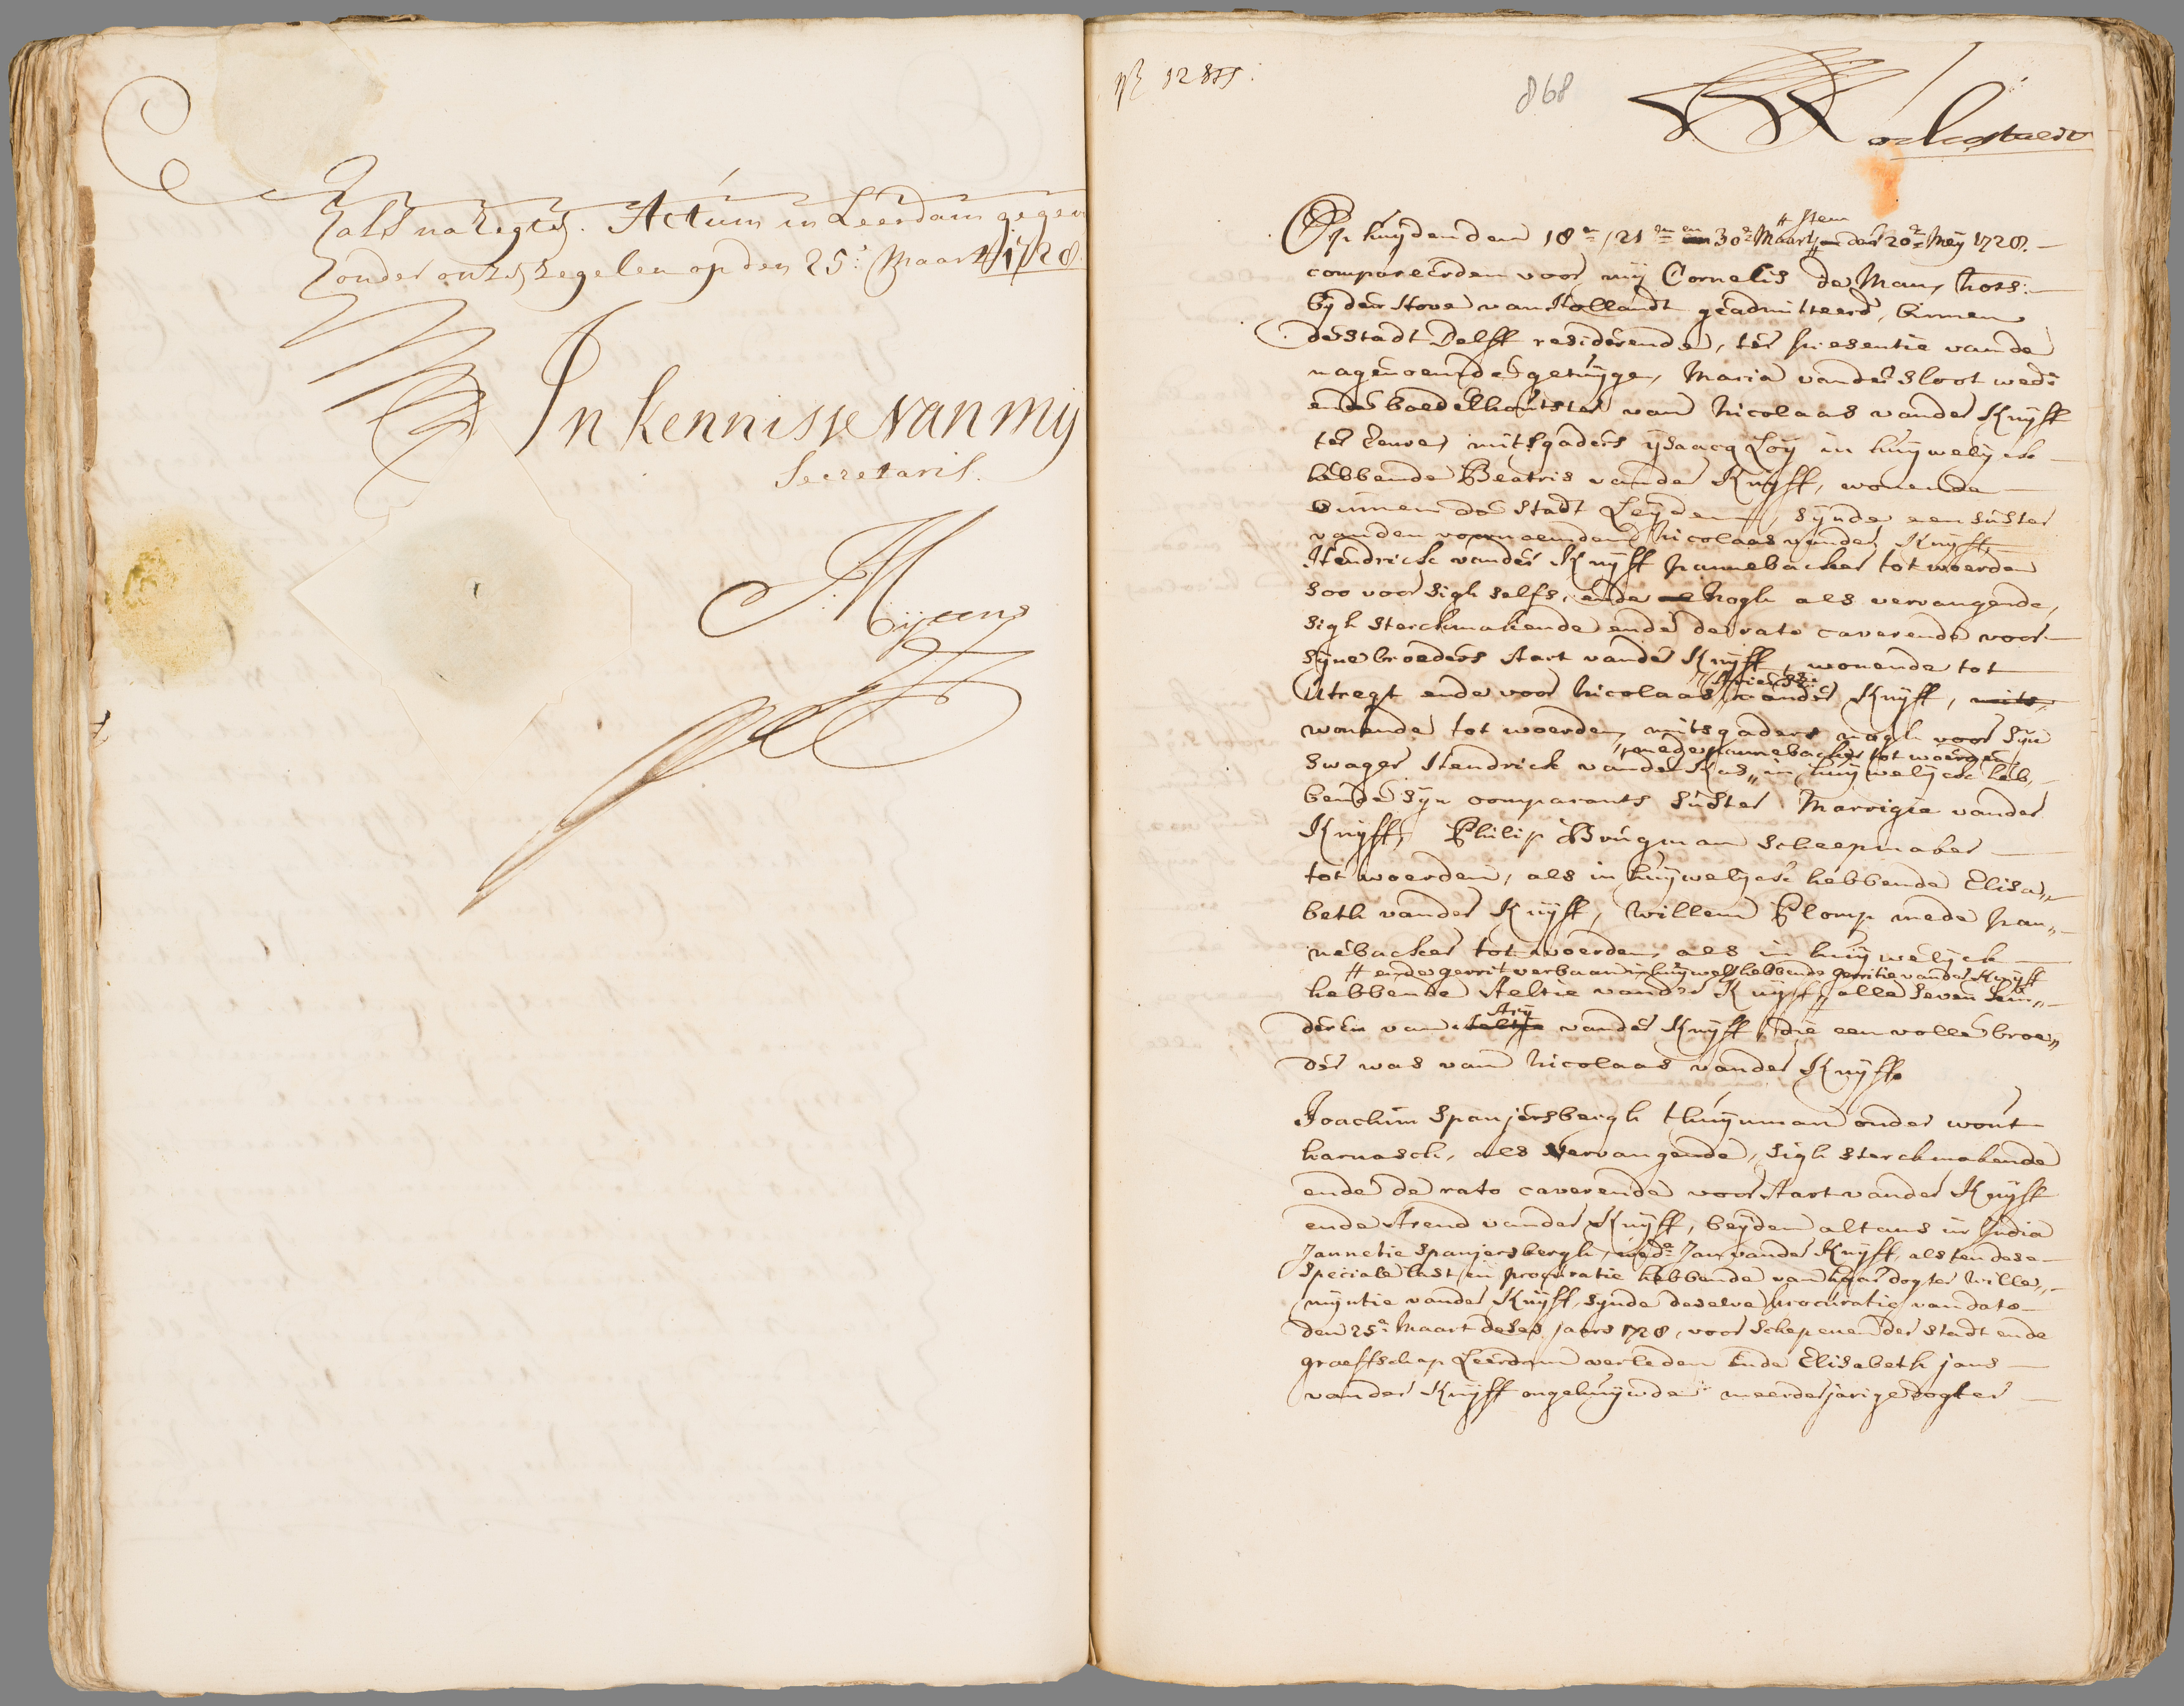 als na regten. Actum in Leerdam gegeven
onder onzen zegelen op den 25: Maart 1728
In kennisse van mij
Secretaris.
868
Op huijden den 18e, 21en en 30e Maart, den 20e Meij 1728.
Item
compareerden voor mij Cornelis de Man, Nots:
bij den Hove van Hollandt geadmitteerd, binnen
de stadt Delff residerende, ter presentie van de
nagenoemde getuijgen, Maria vander Sloot wede
ende boedelhoutster van Nicolaas vander Kuijff
ter eenre, mitsgaders ijsaacq Loij in huijwelijck
hebbende Beatris vander Kuijff, wonende
binnen de stadt Leijden, sijnde een suster
van den voornoemden Nicolaas vander Kuijff,
Hendrick vander Kuijff pannebacker tot woerden
soo voor sigh selfs, ende nogh als vervangende,
sigh sterckmakende ende de rato caverende voor
sijne broeders Aart vander Kuijff, wonende tot
Utregt ende voor Nicolaas vander Kuijff, mits
wonende tot woerden, mitsgaders nogh voor sijn
mede pannebacker tot woerden
swager Hendrick vander Kas, in huijwelijck heb„
bende sijn comparants suster Marrigie vander
Kuijff, Philip Brugman scheepmaker
tot woerden, als in huijwelijck hebbende Elisa„
beth vander Kuijff, Willem Plomp mede pan„
nebacker tot woerden, als in huijwelijck
# ende gerrit verbaan in huijwel: hebbende gerritie vander Kuijff
hebbende Aeltie vander Kuijff, alle seven kin„
Arij
deren van vander Kuijff, die een volle broe„
der was van Nicolaas vander Kuijff
Joachim Spanjersbergh thuijnman onder wout
harnasch, als vervangende, sigh sterckmakende
ende de rato caverende voor Aart vander Kuijff
ende Arend vander Kuijff, beijden altans in India
Jannetie Spanjersbergh, wede Jan vander Kuijff, als ten dese
speciale last en procuratie hebbende van haar dogter Wille„
mijntie vander Kuijff, sijnde deselve procuratie van dato
den 25e Maart deses jaars 1728, voor Schepenen der stadt ende
graeffschap Leerdam verleden Ende Elisabeth jans
vander Kuijff ongehuijwde meerderjarige dogter